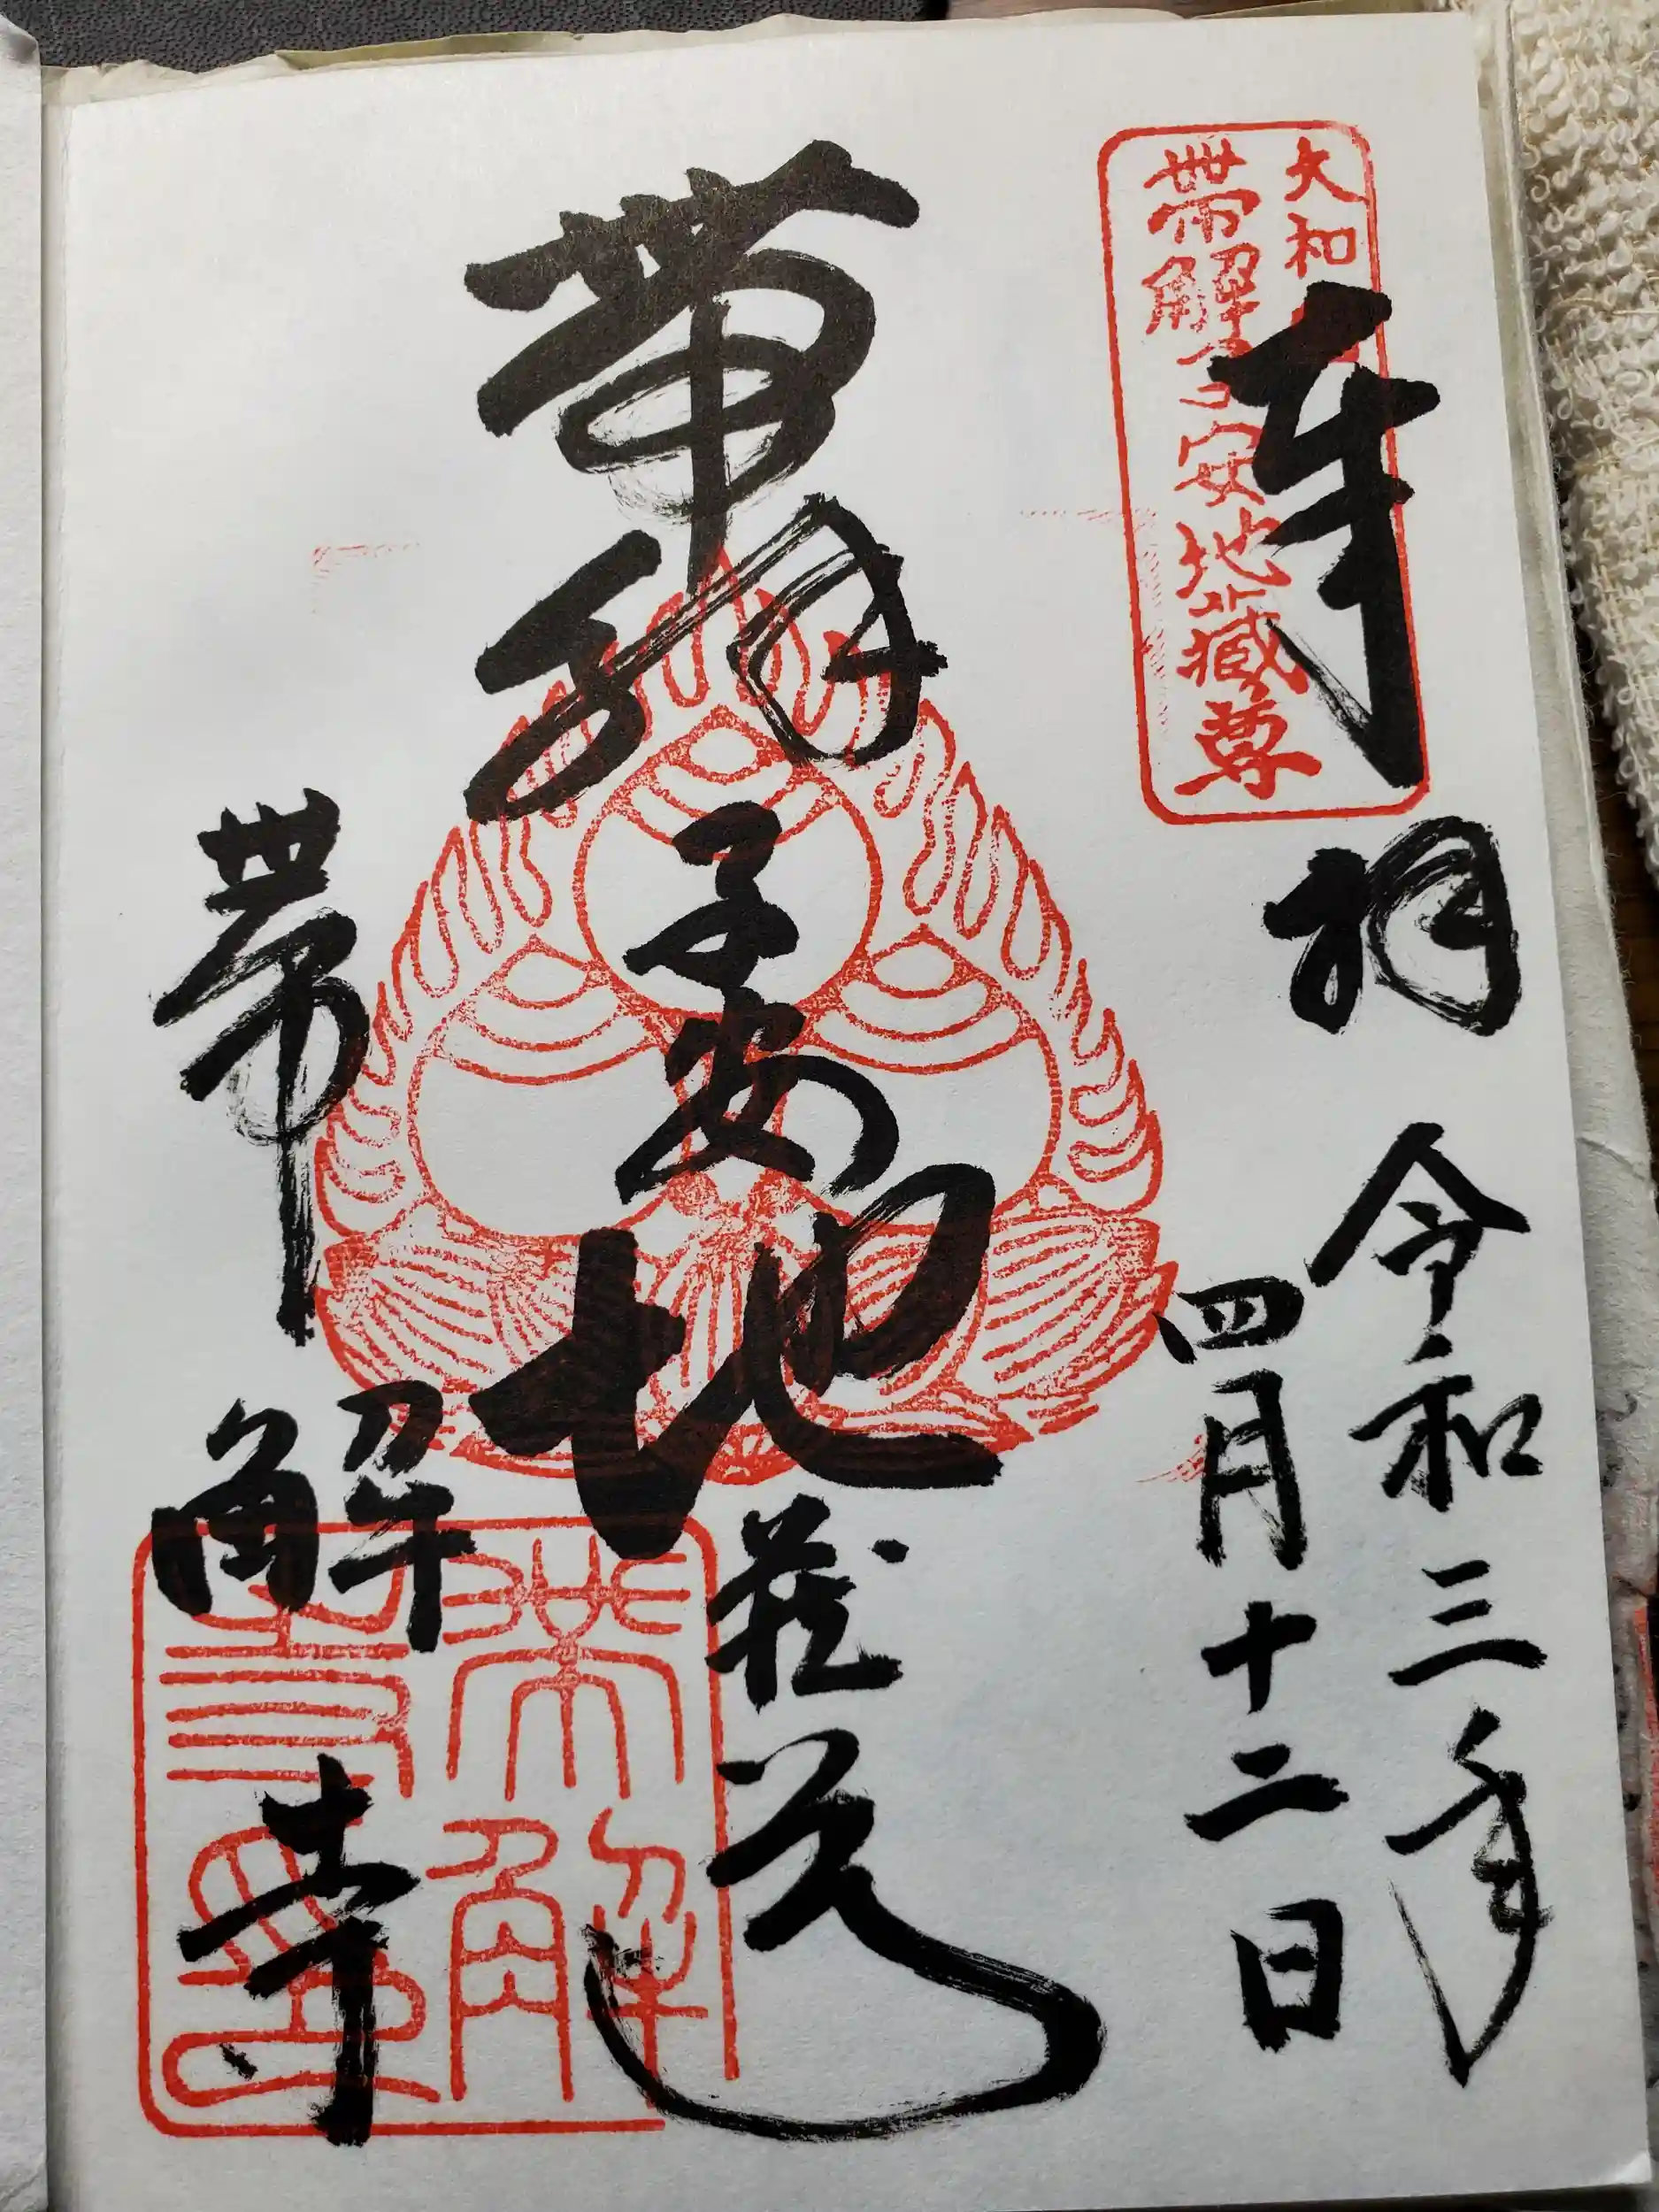 大和
帯解子安地蔵尊
奉拝
令和三年
四月十二日
帯解子安地蔵尊
帯解寺
帯解寺印